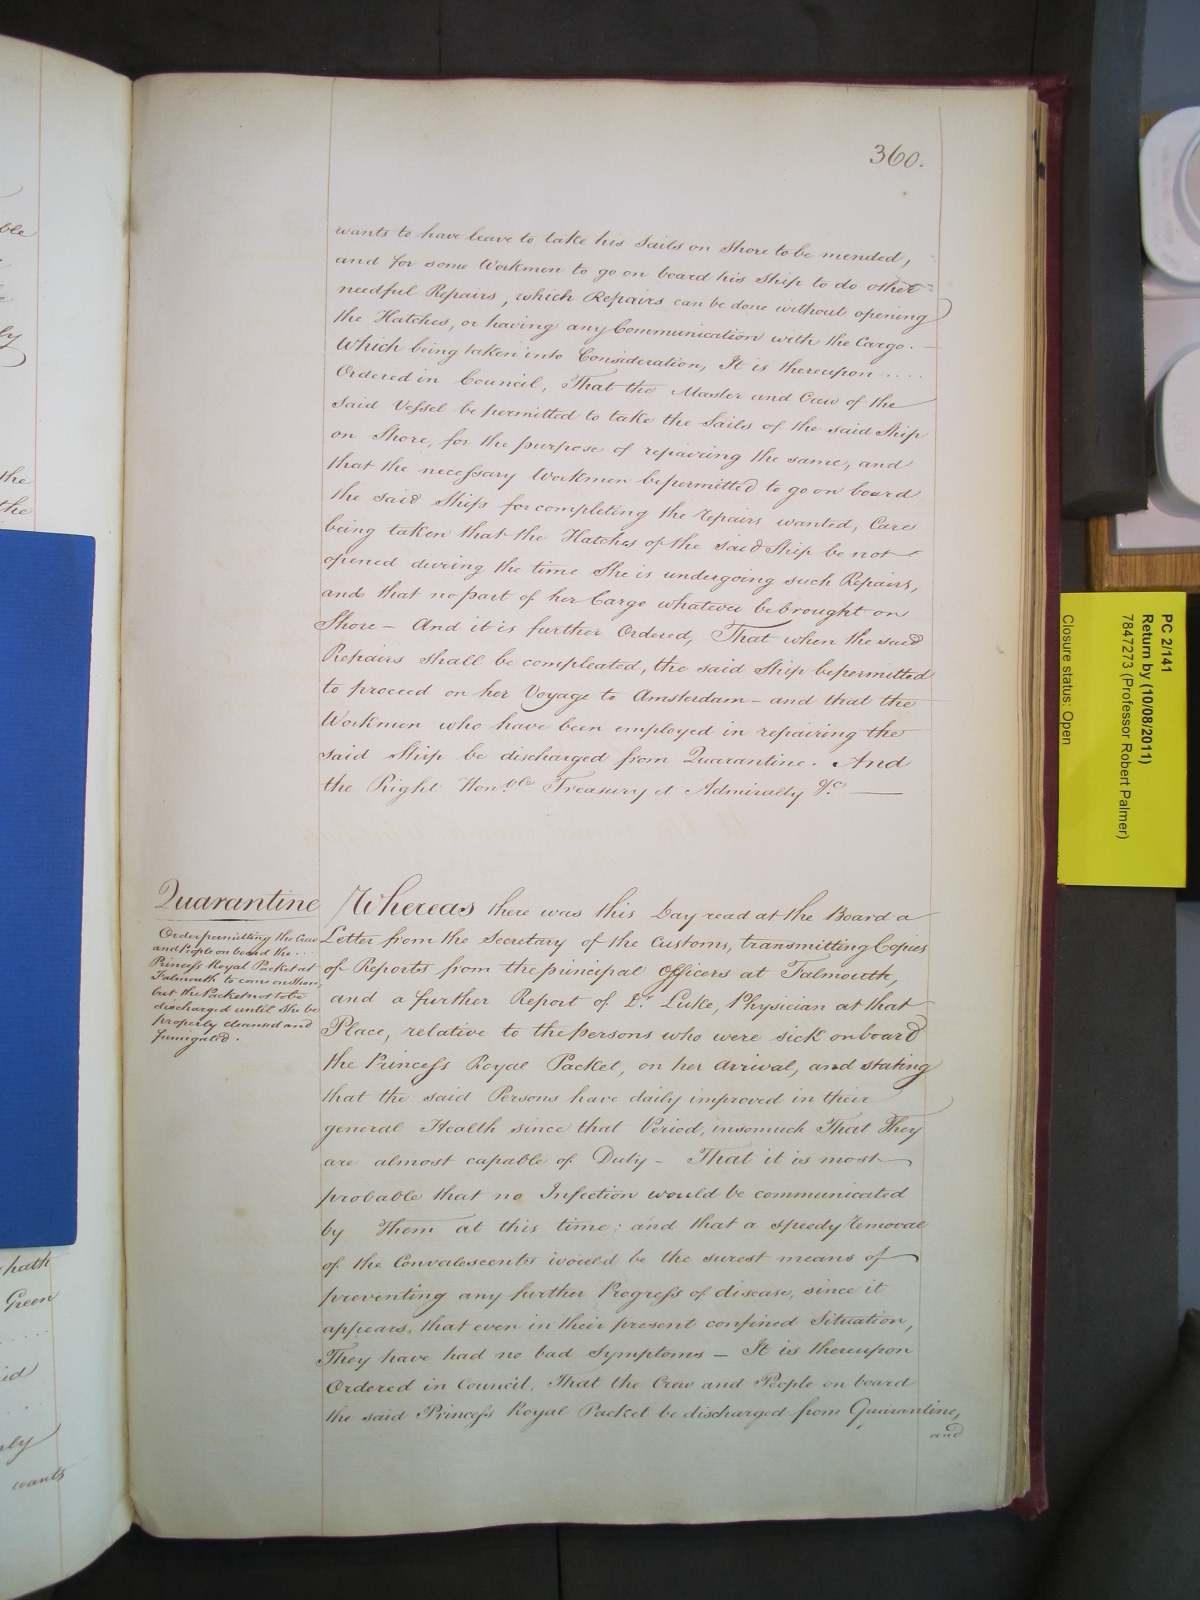 360.
wants to have leave to take his Sails on Shore to be mended,
and for some Workmen to go on board his Ship to do other
needful Repairs, which Repairs can be done without opening
the Hatches, or having any Communication with the Cargo. —
Which being taken into Consideration, It is thereupon .....
Ordered in Council, That the Master and Crew of the
said Vessel be permitted to take the Sails of the said Ship
on Shore, for the purpose of repairing the same, and
that the necessary Workmen be permitted to go on board
the said Ship for completing the repairs wanted, Care
being taken that the Hatches of the said Ship be not
opened during the time She is undergoing such Repairs,
and that no part of her Cargo whatever be brought on
Shore — And it is further Ordered, That when the said
Repairs shall be compleated, the said Ship be permitted
to proceed on her Voyage to Amsterdam — and that the
Workmen who have been employed in repairing the
said Ship be discharged from Quarantine. And
the Right Hon.ble Treasury & Admiralty &c —
Quarantine
Order permitting the Crew
and People on board the ...
Princess Royal Packet at
Falmouth to come on Shore,
but the Packet not to be
discharged until She be
properly cleansed and
fumigated.
Whereas there was this Day read at the Board a
Letter from the Secretary of the Customs, transmitting Copies
of Reports from the principal Officers at Falmouth,
and a further Report of Dr. Luke, Physician at that
Place, relative to the persons who were sick on board
the Princess Royal Packet, on her arrival, and stating
that the said Persons have daily improved in their
general Health since that Period, insomuch That They
are almost capable of Duty — That it is most
probable that no Infection would be communicated
by Them at this time: and that a speedy removal
of the Convalescents would be the surest means of
preventing any further Progress of disease, since it
appears, that even in their present confined Situation,
They have had no bad Symptoms — It is thereupon
Ordered in Council, That the Crew and People on board
the said Princess Royal Packet be discharged from Quarantine,
and
PC 2/141
Return by (10/08/2011)
7847273 (Professor Robert Palmer)
Closure status: Open
the
the
hath
Green
wants